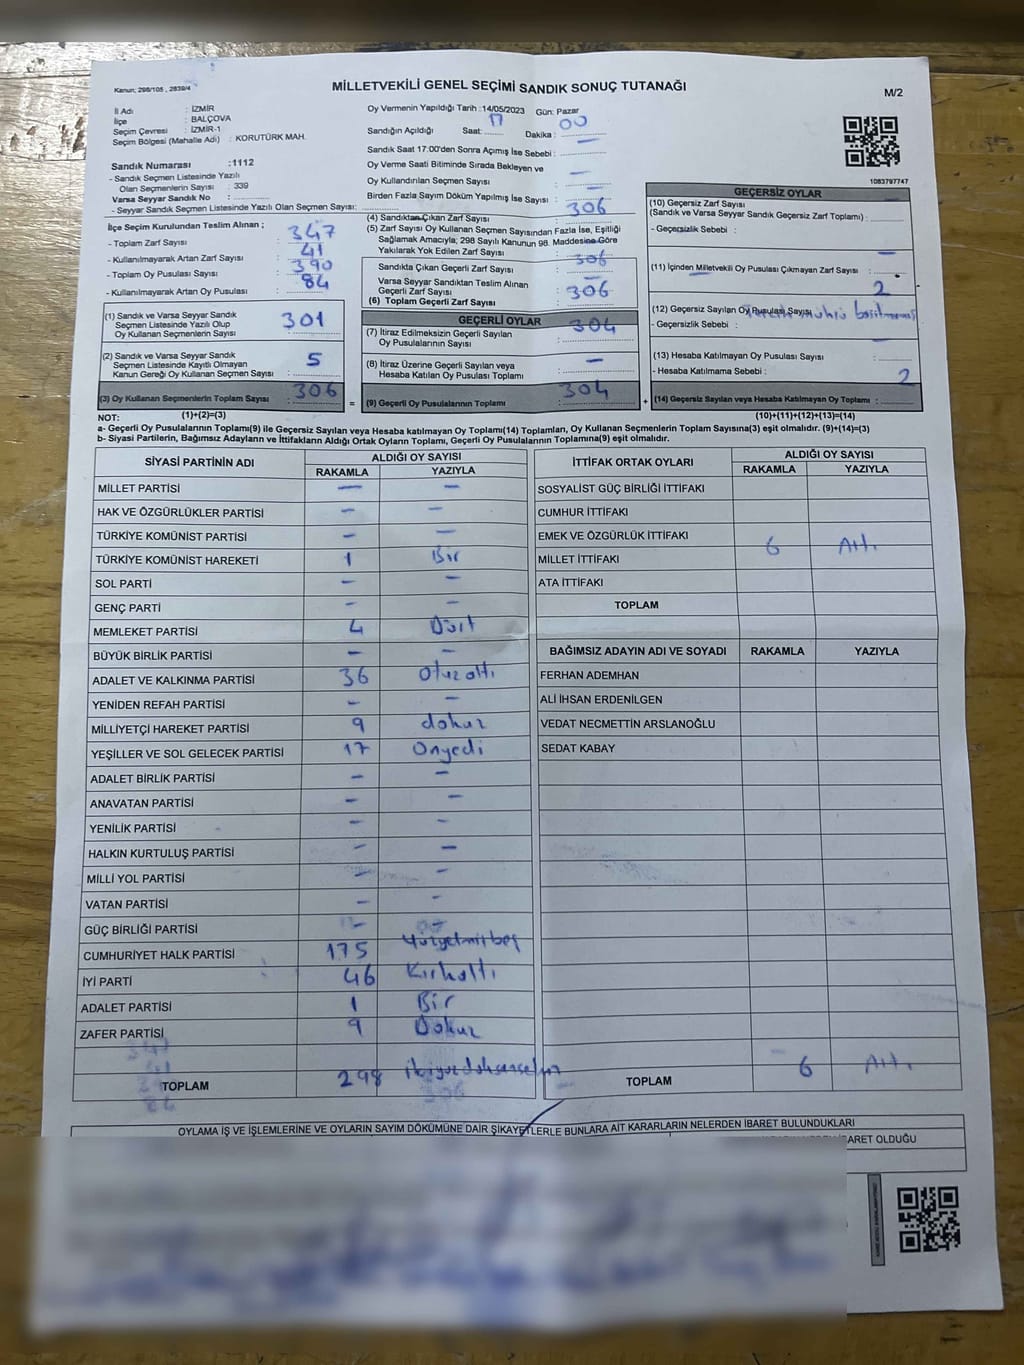 Kanun; 298/105 , 2839/4
MİLLETVEKİLİ GENEL SEÇİMİ SANDIK SONUÇ TUTANAĞI
M/2
İl Adı : İZMİR
İlçe : BALÇOVA
Seçim Çevresi : İZMİR-1
Seçim Bölgesi (Mahalle Adı) : KORUTÜRK MAH.
Sandık Numarası :1112
- Sandık Seçmen Listesinde Yazılı
Olan Seçmenlerin Sayısı : 339
Varsa Seyyar Sandık No :
- Seyyar Sandık Seçmen Listesinde Yazılı Olan Seçmen Sayısı:
İlçe Seçim Kurulundan Teslim Alınan ;
- Toplam Zarf Sayısı : 347
- Kullanılmayarak Artan Zarf Sayısı : 41
- Toplam Oy Pusulası Sayısı : 390
- Kullanılmayarak Artan Oy Pusulası : 84
(1) Sandık ve Varsa Seyyar Sandık
Seçmen Listesinde Yazılı Olup
Oy Kullanan Seçmenlerin Sayısı : 301
(2) Sandık ve Varsa Seyyar Sandık
Seçmen Listesinde Kayıtlı Olmayan
Kanun Gereği Oy Kullanan Seçmen Sayısı : 5
(3) Oy Kullanan Seçmenlerin Toplam Sayısı : 306
(1)+(2)=(3)
Oy Vermenin Yapıldığı Tarih :14/05/2023 Gün: Pazar
Sandığın Açıldığı Saat: 17 Dakika : 00
Sandık Saat 17:00'den Sonra Açımış İse Sebebi : -
Oy Verme Saati Bitiminde Sırada Bekleyen ve
Oy Kullandırılan Seçmen Sayısı : -
Birden Fazla Sayım Döküm Yapılmış İse Sayısı : -
(4) Sandıktan Çıkan Zarf Sayısı : 306
(5) Zarf Sayısı Oy Kullanan Seçmen Sayısından Fazla İse, Eşitliği
Sağlamak Amacıyla; 298 Sayılı Kanunun 98. Maddesine Göre
Yakılarak Yok Edilen Zarf Sayısı : -
Sandıkta Çıkan Geçerli Zarf Sayısı : 306
Varsa Seyyar Sandıktan Teslim Alınan
Geçerli Zarf Sayısı : -
(6) Toplam Geçerli Zarf Sayısı : 306
GEÇERLİ OYLAR
(7) İtiraz Edilmeksizin Geçerli Sayılan
Oy Pusulalarının Sayısı : 304
(8) İtiraz Üzerine Geçerli Sayılan veya
Hesaba Katılan Oy Pusulası Toplamı : -
= (9) Geçerli Oy Pusulalarının Toplamı : 304 +
1083797747
GEÇERSİZ OYLAR
(10) Geçersiz Zarf Sayısı
(Sandık ve Varsa Seyyar Sandık Geçersiz Zarf Toplamı) :
- Geçersizlik Sebebi :
(11) İçinden Milletvekili Oy Pusulası Çıkmayan Zarf Sayısı : -
(12) Geçersiz Sayılan Oy Pusulası Sayısı : 2
- Geçersizlik Sebebi : mührü
(13) Hesaba Katılmayan Oy Pusulası Sayısı :
- Hesaba Katılmama Sebebi :
(14) Geçersiz Sayılan veya Hesaba Katılmayan Oy Toplamı : 2
(10)+(11)+(12)+(13)=(14)
NOT:
a- Geçerli Oy Pusulalarının Toplamı(9) ile Geçersiz Sayılan veya Hesaba katılmayan Oy Toplamı(14) Toplamları, Oy Kullanan Seçmenlerin Toplam Sayısına(3) eşit olmalıdır. (9)+(14)=(3)
b- Siyasi Partilerin, Bağımsız Adayların ve İttifakların Aldığı Ortak Oyların Toplamı, Geçerli Oy Pusulalarının Toplamına(9) eşit olmalıdır.
SİYASİ PARTİNİN ADI ALDIĞI OY SAYISI
RAKAMLA YAZIYLA
MİLLET PARTİSİ - -
HAK VE ÖZGÜRLÜKLER PARTİSİ - -
TÜRKİYE KOMÜNİST PARTİSİ - -
TÜRKİYE KOMÜNİST HAREKETİ 1 Bir
SOL PARTİ - -
GENÇ PARTİ - -
MEMLEKET PARTİSİ 4 Dört
BÜYÜK BİRLİK PARTİSİ - -
ADALET VE KALKINMA PARTİSİ 36 Otuzaltı
YENİDEN REFAH PARTİSİ - -
MİLLİYETÇİ HAREKET PARTİSİ 9 dokuz
YEŞİLLER VE SOL GELECEK PARTİSİ 17 Onyedi
ADALET BİRLİK PARTİSİ - -
ANAVATAN PARTİSİ - -
YENİLİK PARTİSİ - -
HALKIN KURTULUŞ PARTİSİ - -
MİLLİ YOL PARTİSİ - -
VATAN PARTİSİ - -
GÜÇ BİRLİĞİ PARTİSİ -
CUMHURİYET HALK PARTİSİ 175 Yüzyetmişbeş
İYİ PARTİ 46 Kırkaltı
ADALET PARTİSİ 1 Bir
ZAFER PARTİSİ 9 Dokuz
TOPLAM 298 ikiyüzdoksansekiz
İTTİFAK ORTAK OYLARI ALDIĞI OY SAYISI
RAKAMLA YAZIYLA
SOSYALİST GÜÇ BİRLİĞİ İTTİFAKI
CUMHUR İTTİFAKI
EMEK VE ÖZGÜRLÜK İTTİFAKI
MİLLET İTTİFAKI 6 Altı
ATA İTTİFAKI
TOPLAM
BAĞIMSIZ ADAYIN ADI VE SOYADI RAKAMLA YAZIYLA
FERHAN ADEMHAN
ALİ İHSAN ERDENİLGEN
VEDAT NECMETTİN ARSLANOĞLU
SEDAT KABAY
TOPLAM 6 Altı
OYLAMA İŞ VE İŞLEMLERİNE VE OYLARIN SAYIM DÖKÜMÜNE DAİR ŞİKAYETLERLE BUNLARA AİT KARARLARIN NELERDEN İBARET BULUNDUKLARI
OLDUĞU